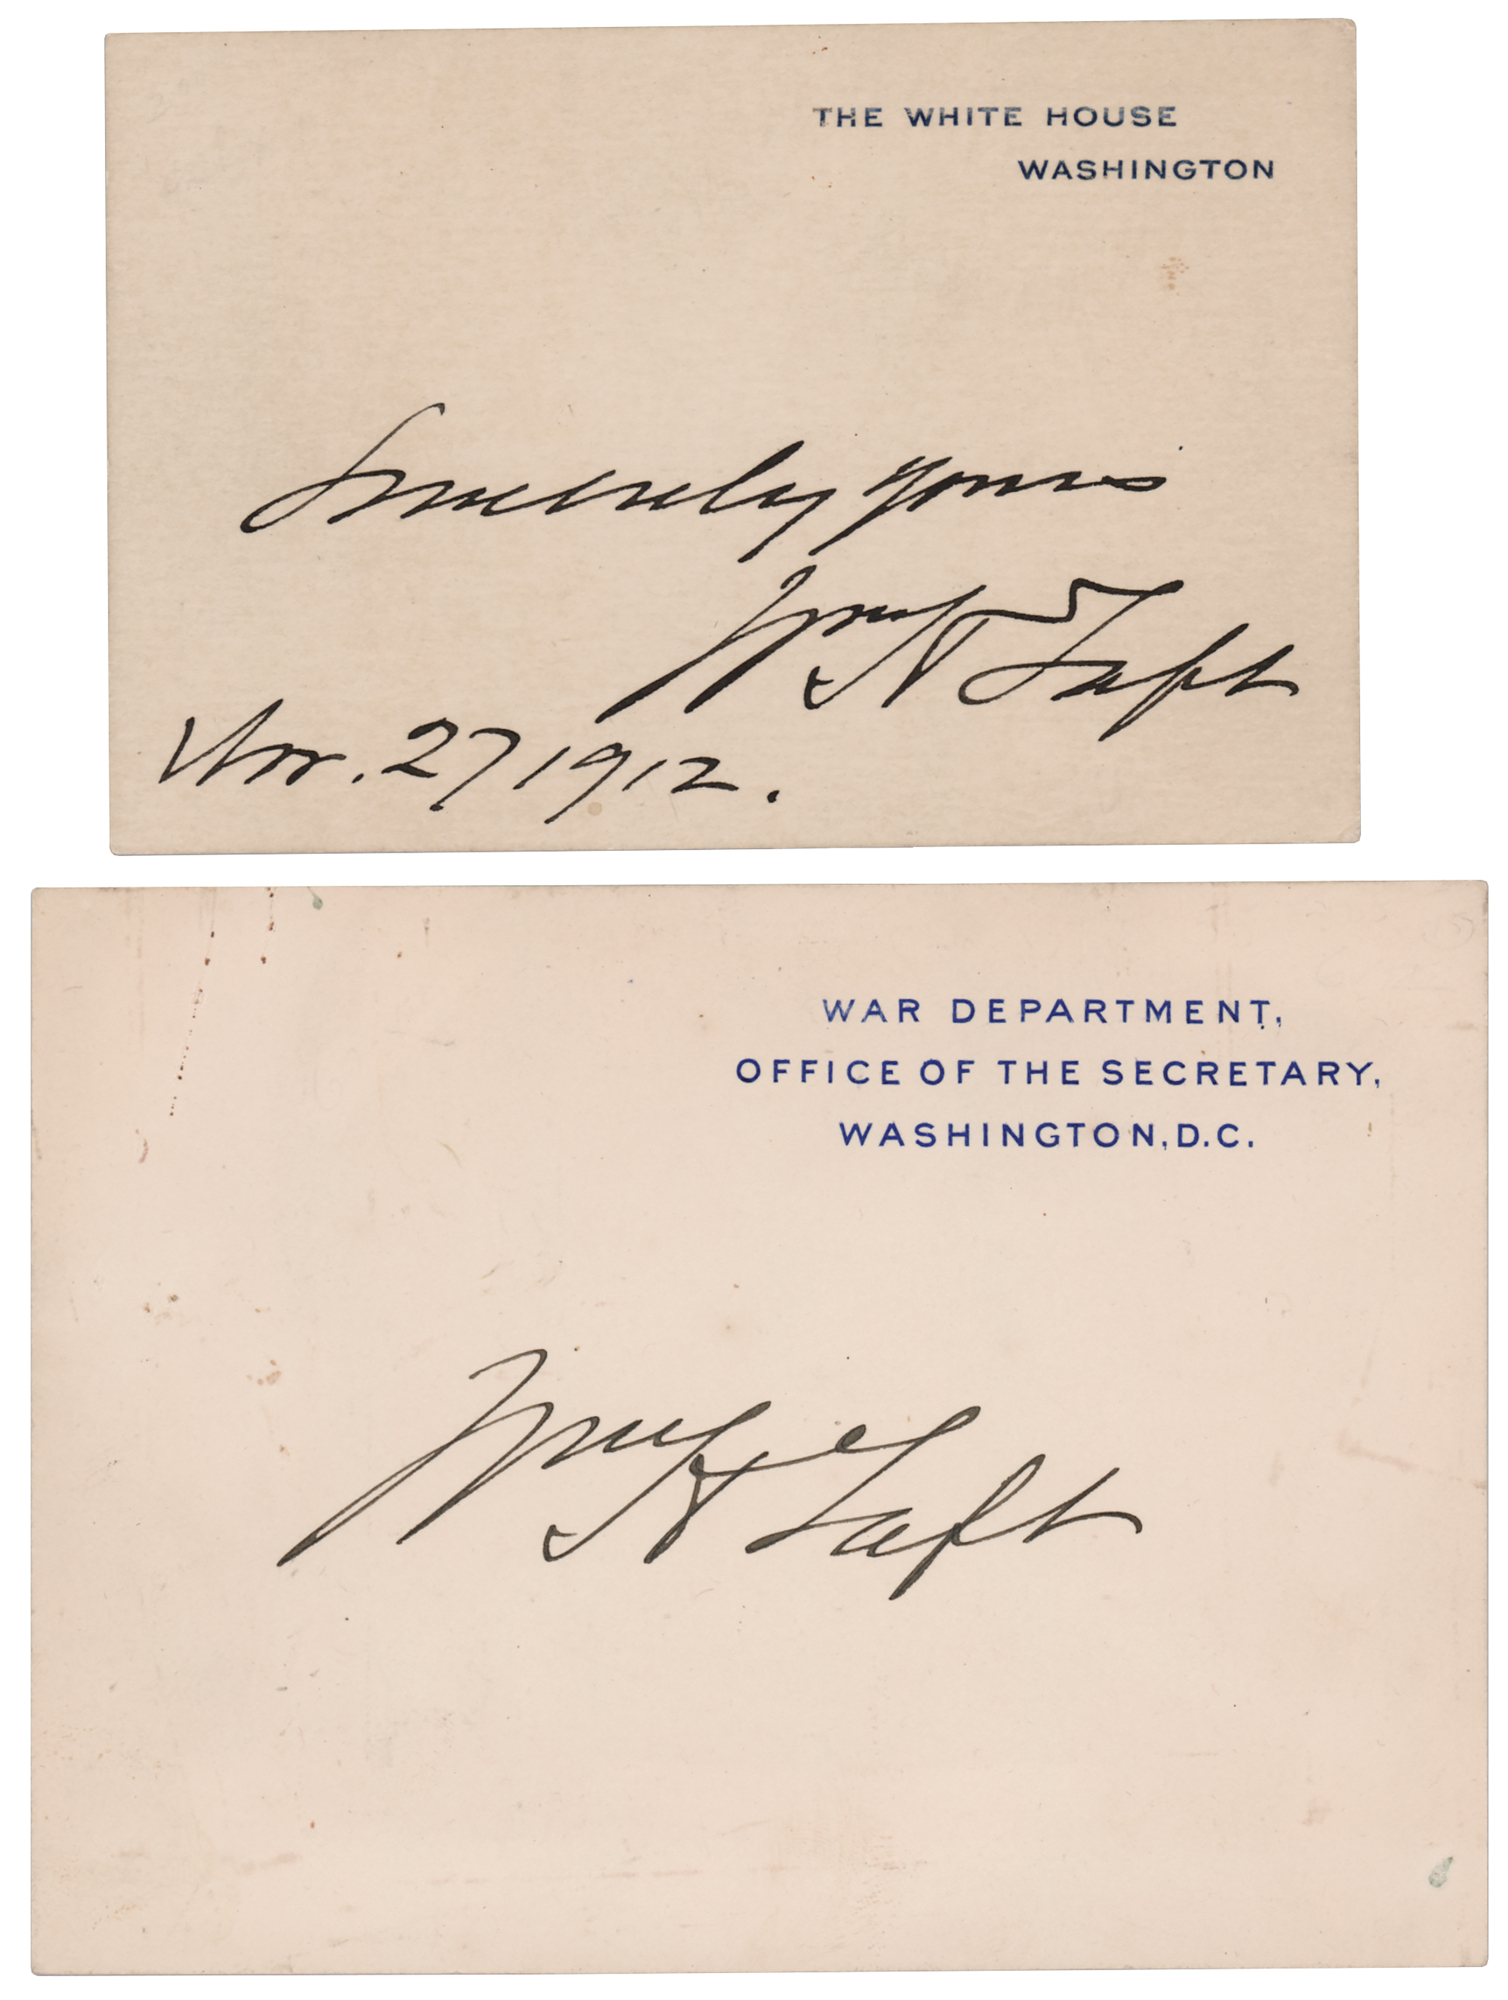 THE WHITE HOUSE
WASHINGTON
Sincerely yours
Wm H Taft
Nov. 27 1912.
WAR DEPARTMENT,
OFFICE OF THE SECRETARY,
WASHINGTON, D.C.
Wm H Taft